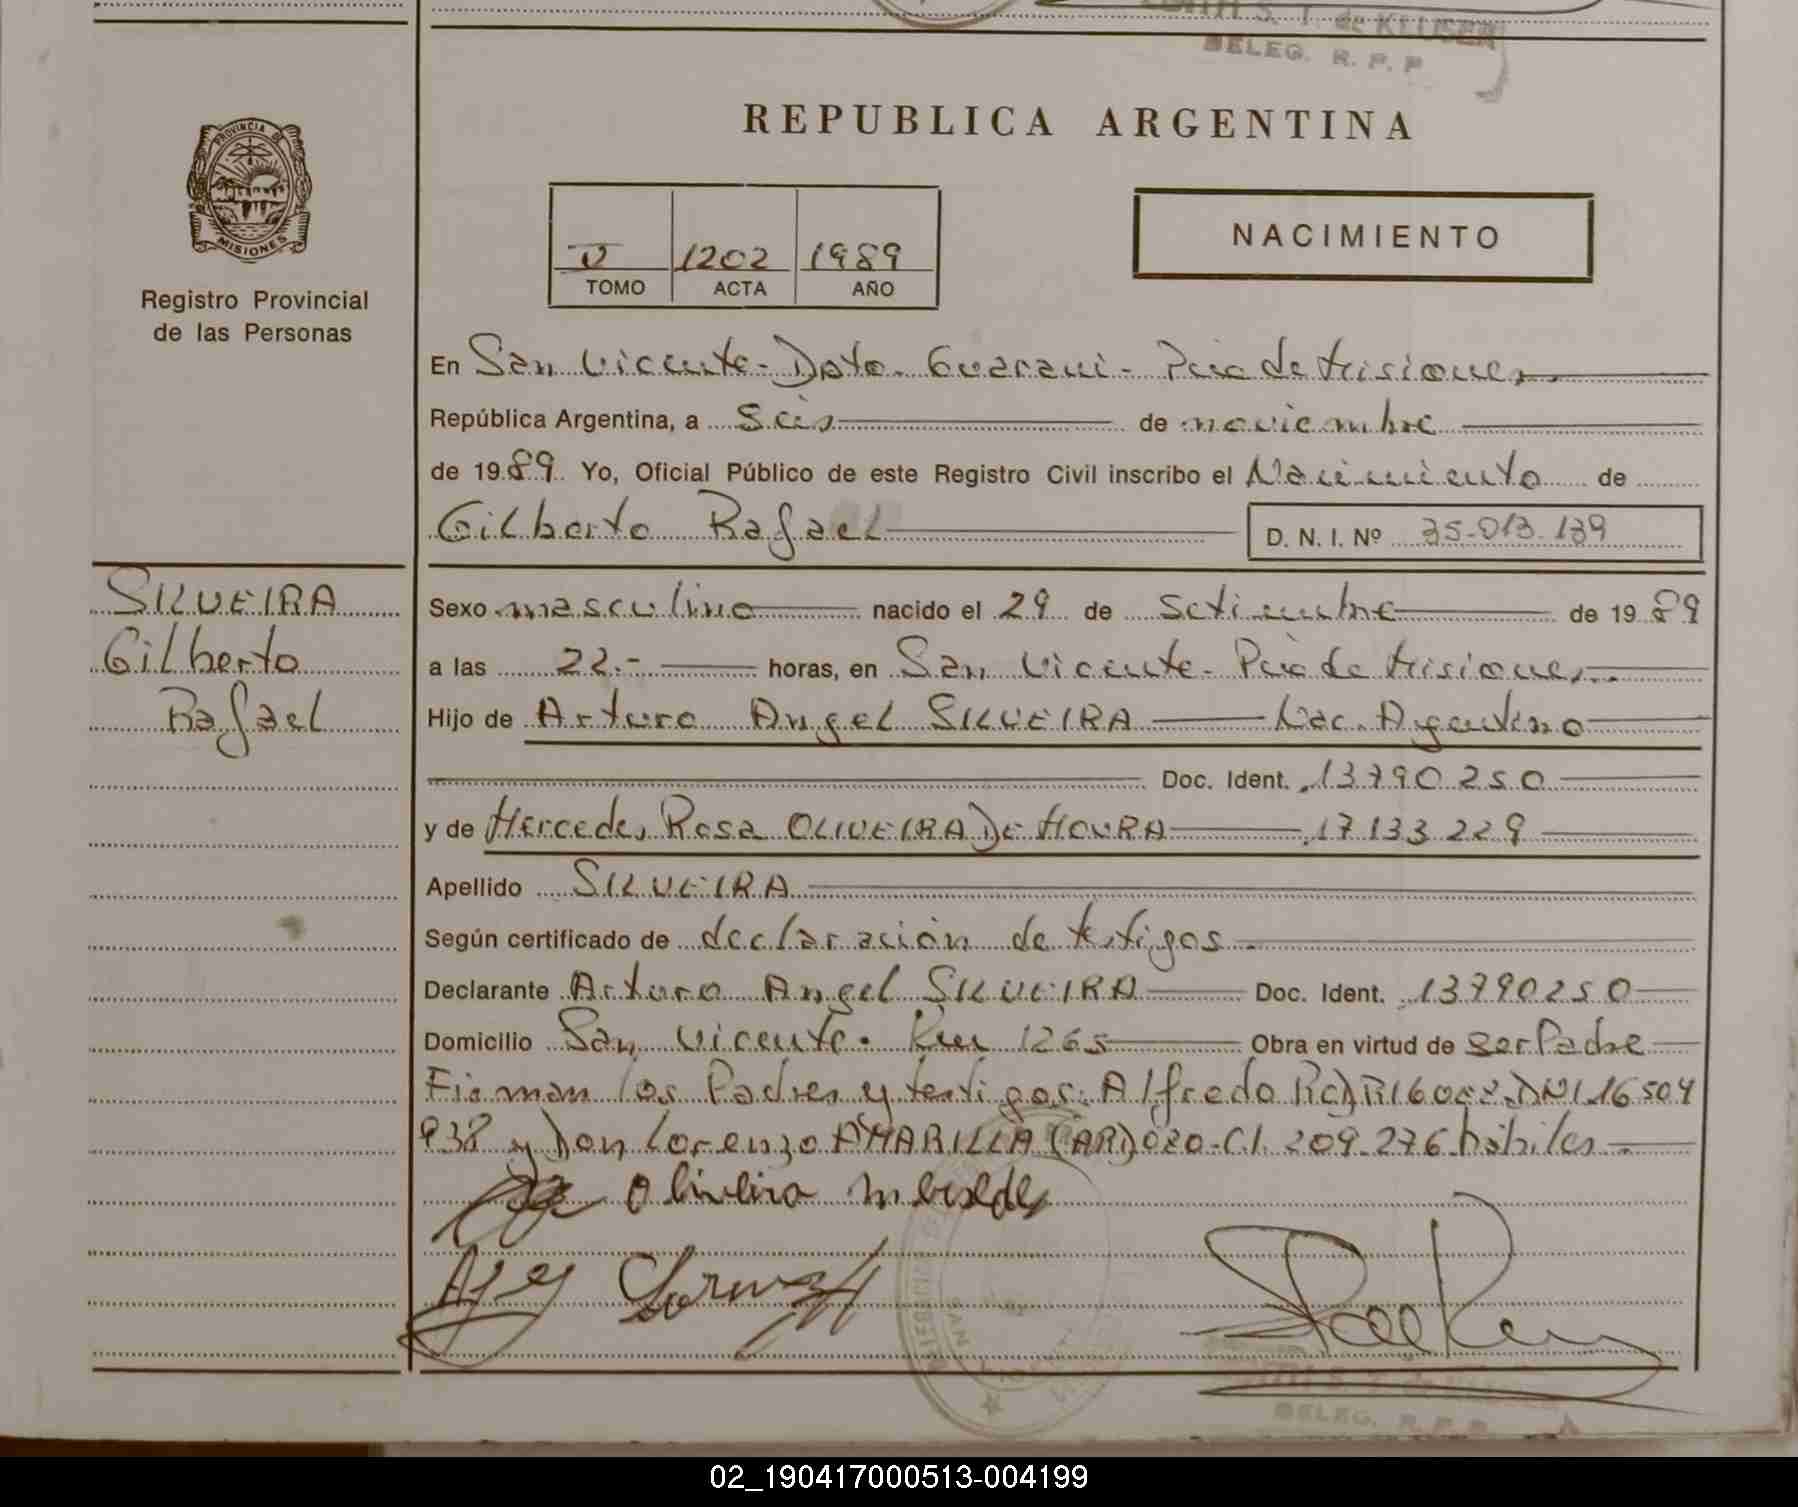 S. T. de KLUSER
DELEG. R. P. P.
REPUBLICA ARGENTINA
PROVINCIA DE
MISIONES
Registro Provincial
de las Personas
V 1202 1989
TOMO ACTA AÑO
NACIMIENTO
En San Vicente - Dpto. Guarani - Pcia de Misiones
República Argentina, a seis de noviembre
de 1989 Yo, Oficial Público de este Registro Civil inscribo el Nacimiento de
Gilberto Rafael D. N. I. Nº 35.013.139
SILVEIRA
Gilberto
Rafael
Sexo masculino nacido el 29 de setiembre de 1989
a las 22.- horas, en San Vicente - Pcia de Misiones
Hijo de Arturo Angel SILVEIRA Nac. Argentino
Doc. Ident. 13790250
y de Mercedes Rosa OLIVEIRA DE MOURA 17.133.229
Apellido SILVEIRA
Según certificado de declaración de testigos
Declarante Arturo Angel SILVEIRA Doc. Ident. 13790250
Domicilio San Vicente. Km 1265 Obra en virtud de ser Padre
Firman los Padres y testigos: Alfredo DNI.16504
938 y Don Lorenzo AMARILLA C.I. 209.276 hábiles
Oliveira Mersedes
DELEG. R. P. P.
02_190417000513-004199